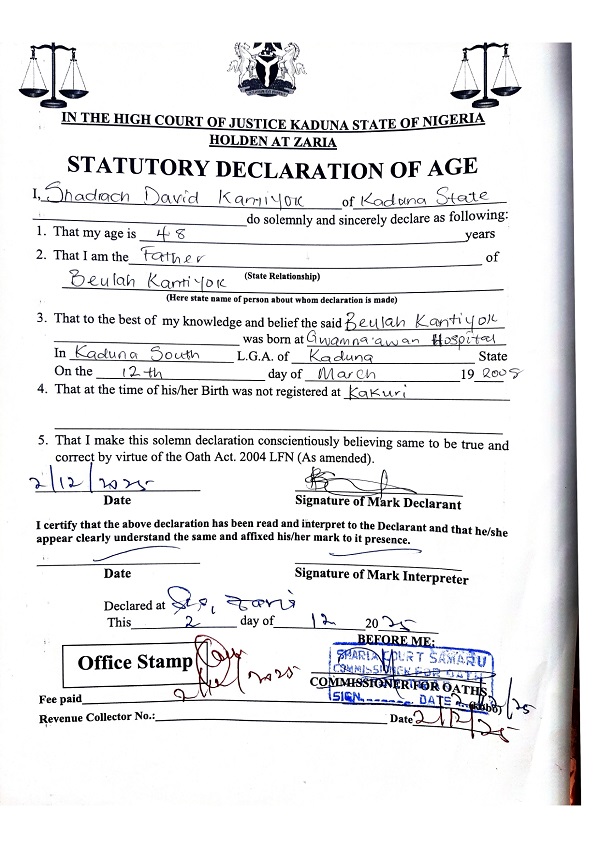 IN THE HIGH COURT OF JUSTICE KADUNA STATE OF NIGERIA
HOLDEN AT ZARIA
STATUTORY DECLARATION OF AGE
I, Shadrach David Kantiyok of Kaduna State
do solemnly and sincerely declare as following:
1. That my age is 48 years
2. That I am the Father of
Beulah Kantiyok (State Relationship)
(Here state name of person about whom declaration is made)
3. That to the best of my knowledge and belief the said Beulah Kantiyok
was born at Gwamna'awan Hospital
In Kaduna South L.G.A. of Kaduna State
On the 12th day of March 19 2008
4. That at the time of his/her Birth was not registered at Kakuri
5. That I make this solemn declaration conscientiously believing same to be true and
correct by virtue of the Oath Act. 2004 LFN (As amended).
2/12/2025
Date Signature of Mark Declarant
I certify that the above declaration has been read and interpret to the Declarant and that he/she
appear clearly understand the same and affixed his/her mark to it presence.
Date Signature of Mark Interpreter
Declared at
This 2 day of 12 2025
BEFORE ME:
SHARIA COURT SAMARU
COMMISSIONER FOR OATH
Office Stamp
2/12/2025
COMMISSIONER FOR OATHS
SIGN. DATE
Fee paid (kobo)
Revenue Collector No.: Date 2/12/25